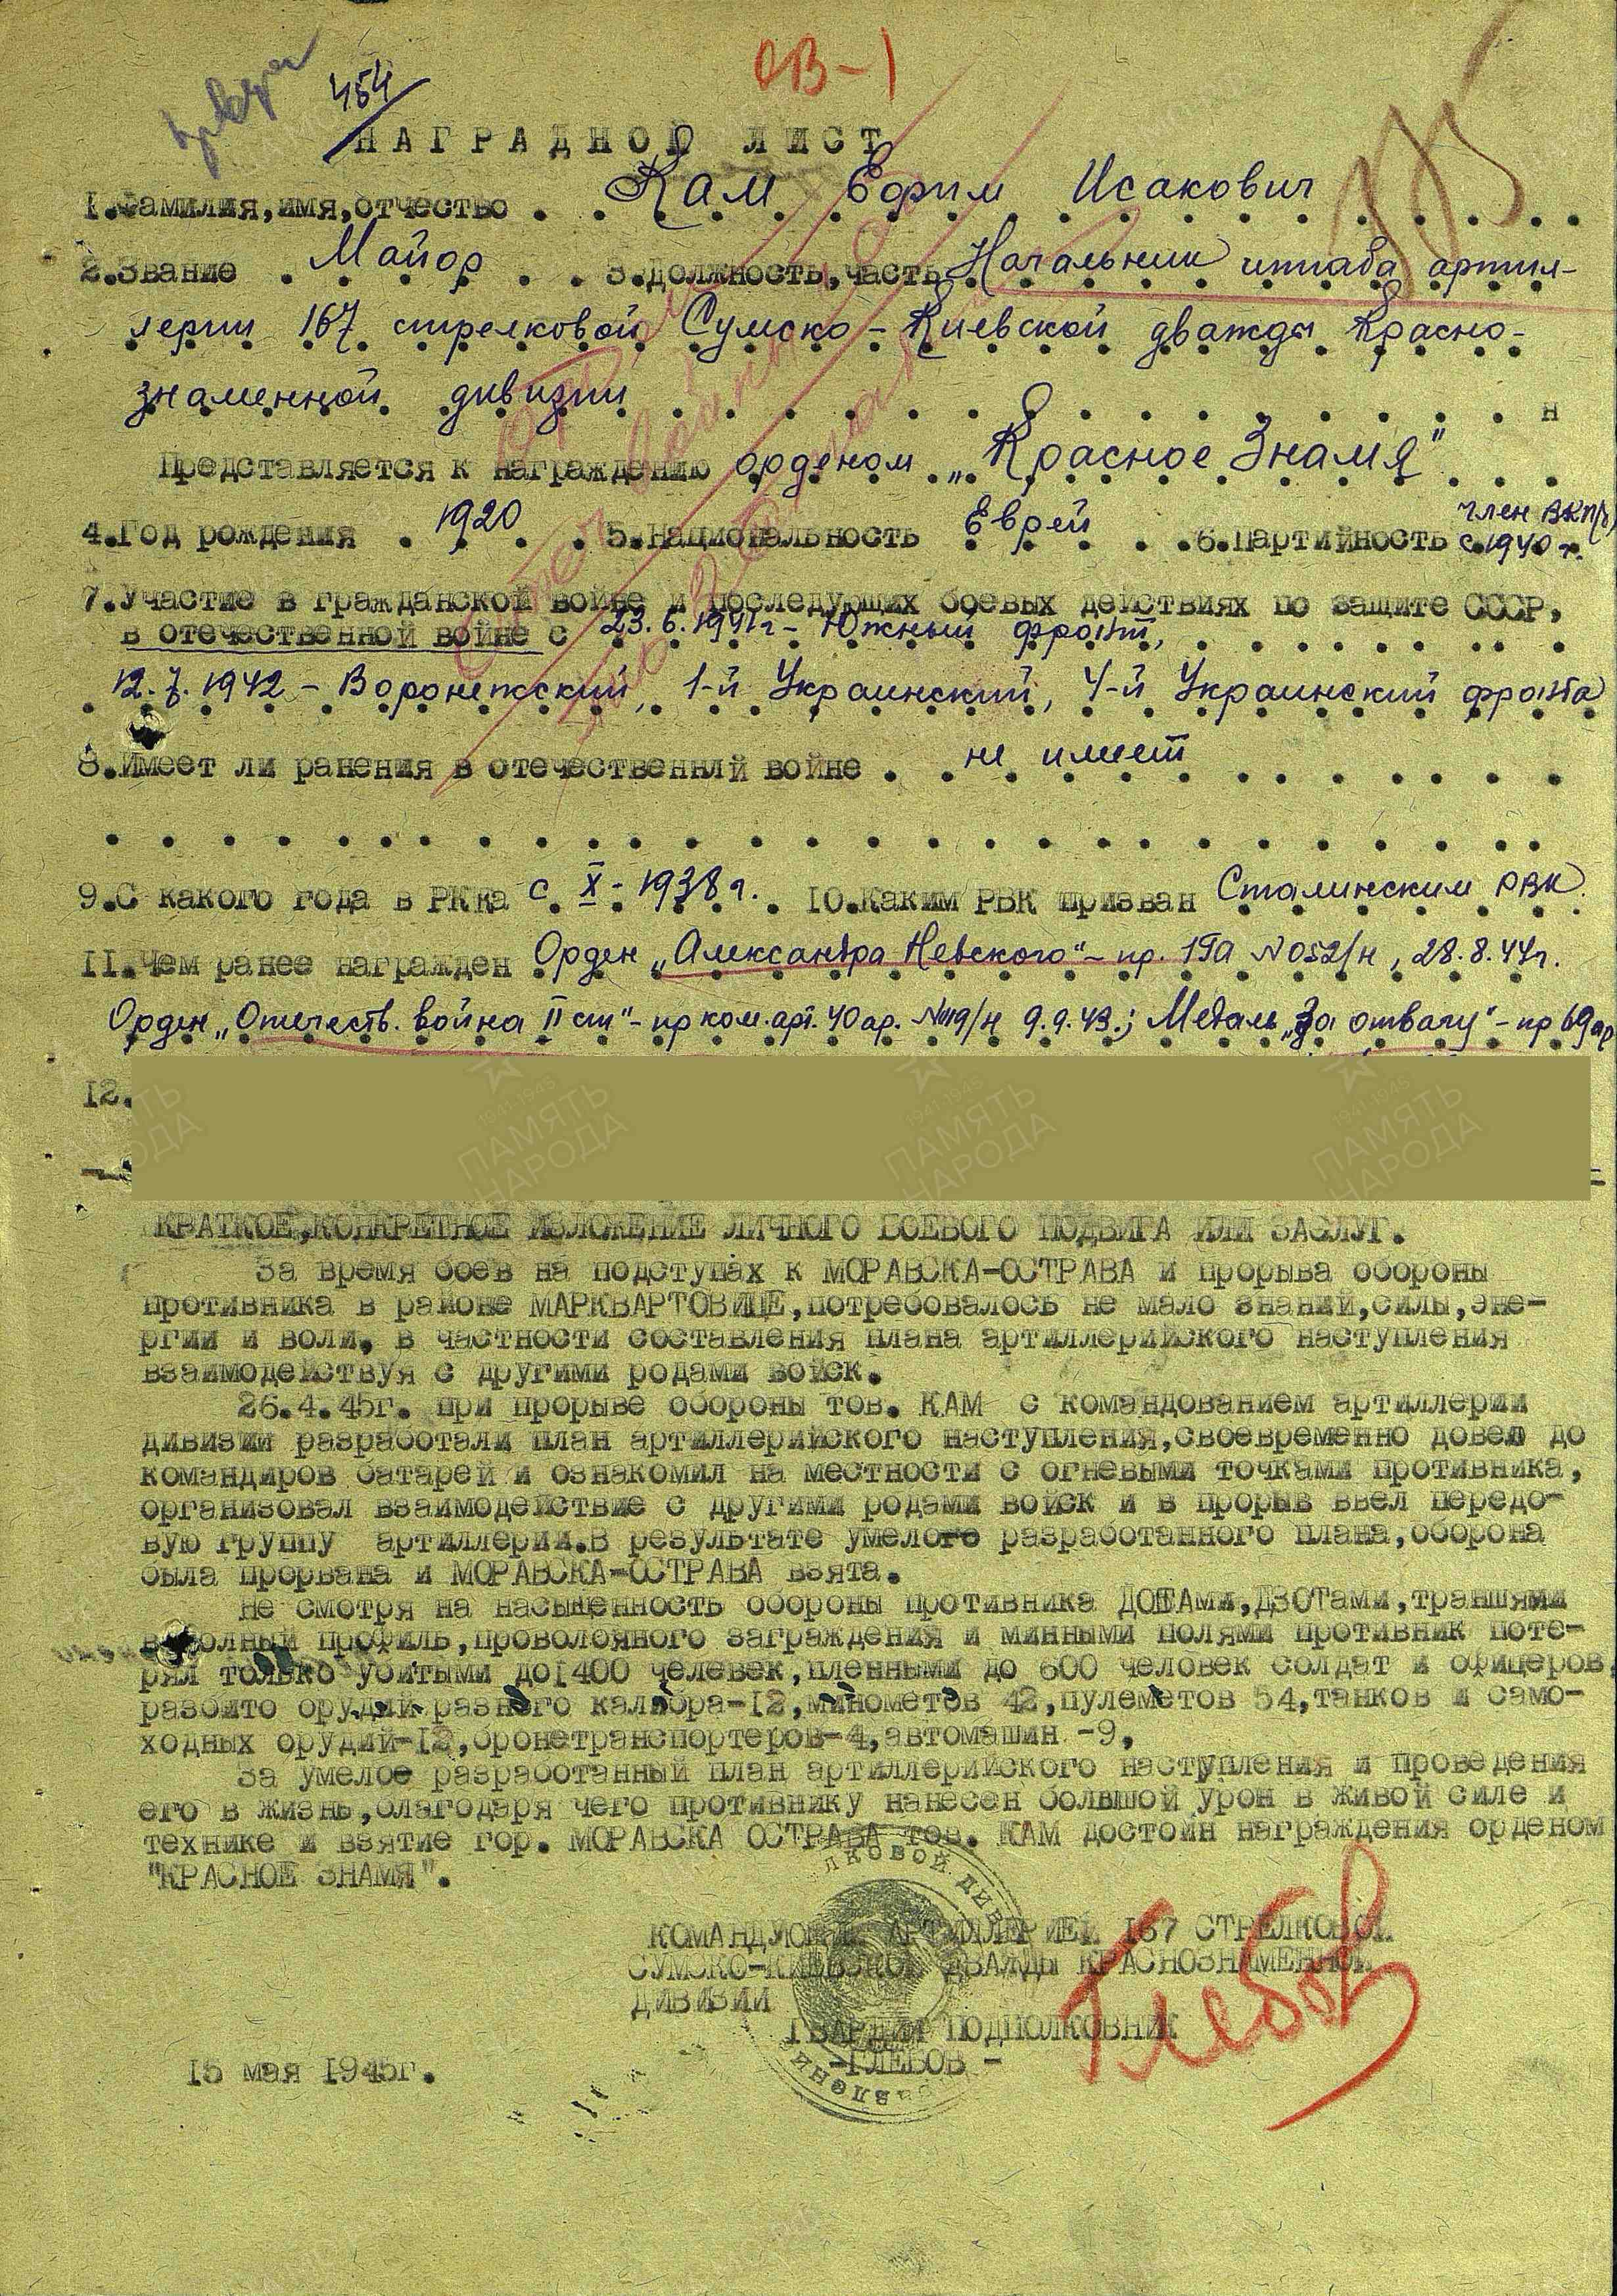 454
ОВ-1
НАГРАДНОЙ ЛИСТ
1.Фамилия,имя,отчество . Кам Ефим Исакович
2.Звание . Майор . 3.Должность,часть Начальник штаба артил-
лерии 167 стрелковой Сумско-Киевской дважды Красно-
знаменной дивизии
Представляется к награждению орденом „Красное Знамя"
4.Год рождения . 1920 . 5.Национальность Еврей . 6.Партийность член ВКП(б)
с 1940 г.
7.Участие в гражданской войне и последующих боевых действиях по защите СССР,
в отечественной войне с 23.6.1941г - Южный фронт,
12.7.1942 - Воронежский, 1-й Украинский, 4-й Украинский фронта
8.Имеет ли ранения в отечественнлй войне . не имеет
9.С какого года в РККА с X - 1938 г. 10.Каким РВК призван Сталинским РВК.
11.Чем ранее награжден Орден „Александра Невского" - пр. 1ГА №052/н, 28.8.44г.
Орден „Отечеств. война II ст" - пр ком.арт. 40 ар. №19/н 9.9.43.; Медаль „За отвагу" - пр 69ар
12.
ПАМЯТЬ НАРОДА
КРАТКОЕ,КОНКРЕТНОЕ ИЗЛОЖЕНИЕ ЛИЧНОГО БОЕВОГО ПОДВИГА ИЛИ ЗАСЛУГ.
За время боев на подступах к МОРАВСКА-ОСТРАВА и прорыва обороны
противника в районе МАРКВАРТОВИЦЕ,потребовалось не мало знаний,силы,эне-
ргии и воли, в частности составления плана артиллерийского наступления
взаимодействуя с другими родами войск.
26.4.45г. при прорыве обороны тов. КАМ с командованием артиллерии
дивизии разработали план артиллерийского наступления,своевременно довел до
командиров батарей и ознакомил на местности с огневыми точками противника,
организовал взаимодействие с другими родами войск и в прорыв ввел передо-
вую группу артиллерии.В результате умелого разработанного плана,оборона
была прорвана и МОРАВСКА-ОСТРАВА взята.
Не смотря на насыщенность обороны противника ДОТАми,ДЗОТами,траншями
в полный профиль,проволочного заграждения и минными полями противник поте-
рял только убитыми до 1400 челевек,пленными до 600 человек солдат и офицеров,
разбито орудий разного калибра-12,минометов 42,пулеметов 54,танков и само-
ходных орудий-12,бронетранспортеров-4,автомашин -9,
За умелое разработанный план артиллерийского наступления и проведения
его в жизнь,благодаря чего противнику нанесен большой урон в живой силе и
технике и взятие гор. МОРАВСКА ОСТРАВА тов. КАМ достоин награждения орденом
"КРАСНОЕ ЗНАМЯ".
КОМАНДУЮЩИЙ АРТИЛЛЕРИЕЙ 167 СТРЕЛКОВОЙ
СУМСКО-КИЕВСКОЙ ДВАЖДЫ КРАСНОЗНАМЕННОЙ
ДИВИЗИИ
ГВАРДИИ ПОДПОЛКОВНИК
-ГЛЕБОВ -
Глебов
15 мая 1945г.